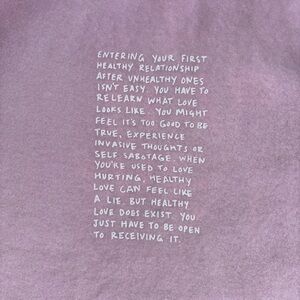 ENTERING YOUR FIRST
HEALTHY RELATIONSHIP
AFTER UNHEALTHY ONES
ISN'T EASY. YOU HAVE TO
RELEARN WHAT LOVE
LOOKS LIKE. YOU MIGHT
FEEL IT'S TOO GOOD TO BE
TRUE, EXPERIENCE
INVASIVE THOUGHTS OR
SELF SABOTAGE. WHEN
YOU'RE USED TO LOVE
HURTING, HEALTHY
LOVE CAN FEEL LIKE
A LIE. BUT HEALTHY
LOVE DOES EXIST. YOU
JUST HAVE TO BE OPEN
TO RECEIVING IT.